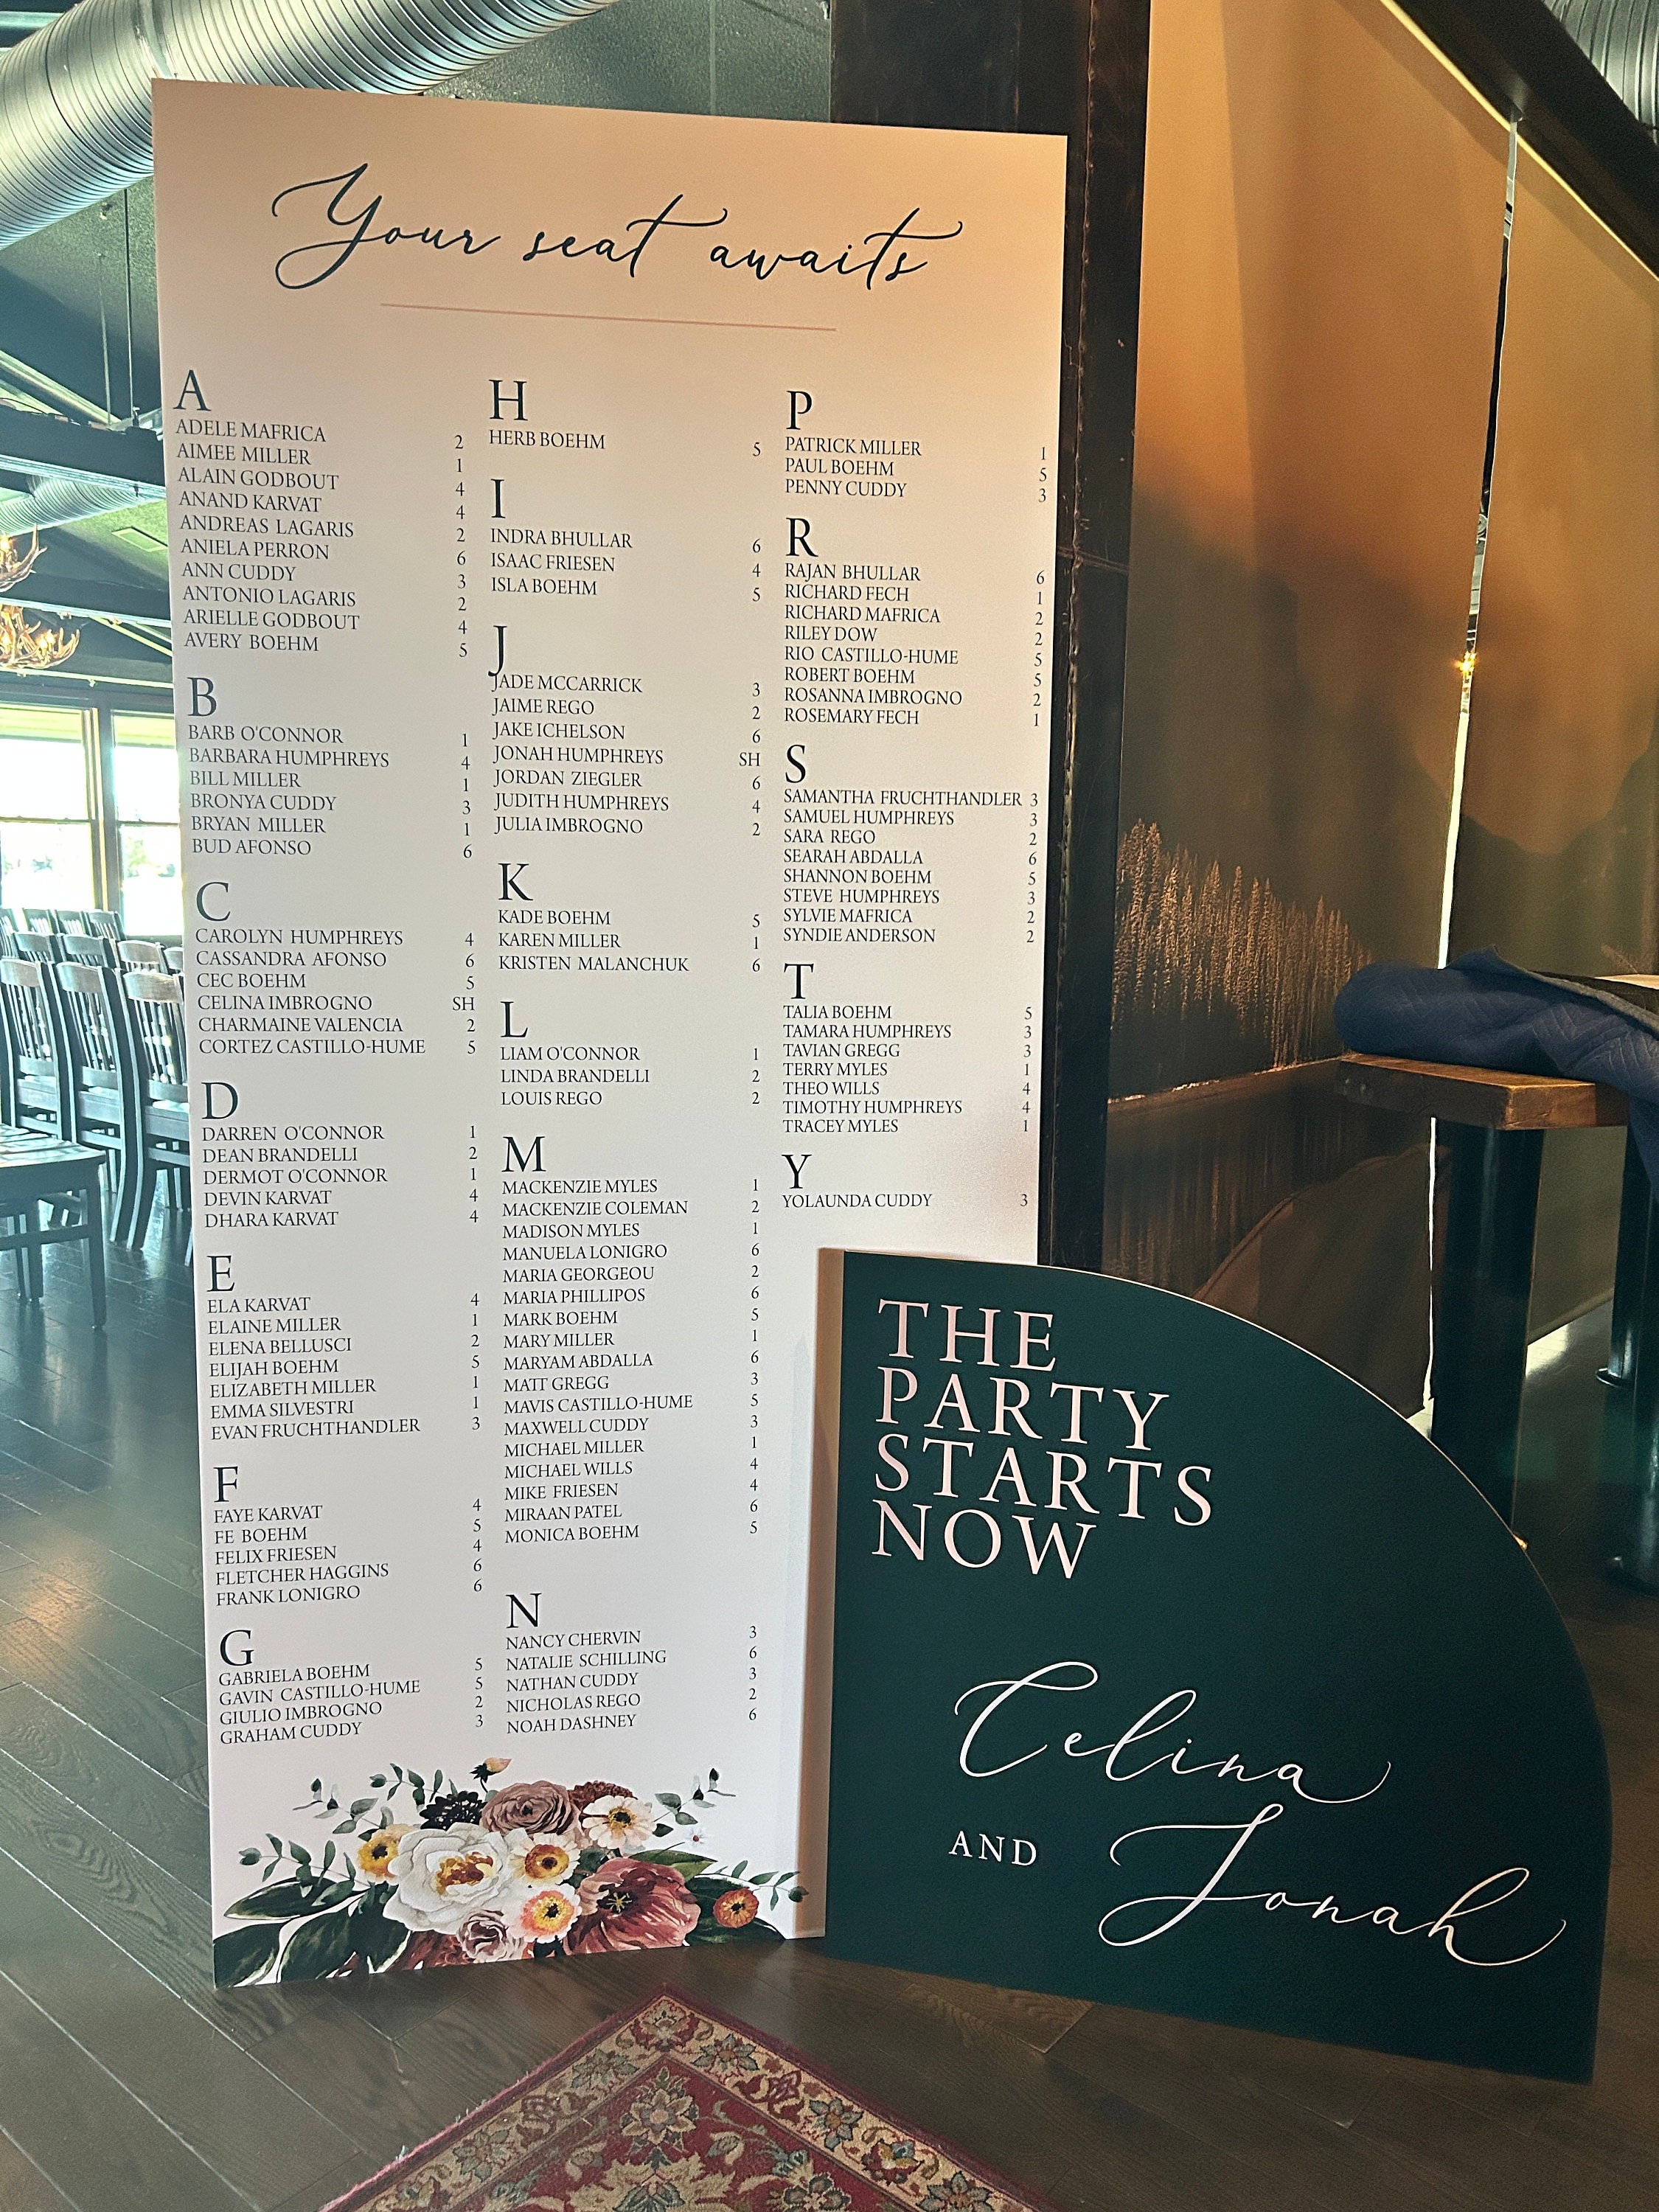 Your seat awaits
A
ADELE MAFRICA 2
AIMEE MILLER 1
ALAIN GODBOUT 4
ANAND KARVAT 4
ANDREAS LAGARIS 2
ANIELA PERRON 6
ANN CUDDY 3
ANTONIO LAGARIS 2
ARIELLE GODBOUT 4
AVERY BOEHM 5
B
BARB O'CONNOR 1
BARBARA HUMPHREYS 4
BILL MILLER 1
BRONYA CUDDY 3
BRYAN MILLER 1
BUD AFONSO 6
C
CAROLYN HUMPHREYS 4
CASSANDRA AFONSO 6
CEC BOEHM 5
CELINA IMBROGNO SH
CHARMAINE VALENCIA 2
CORTEZ CASTILLO-HUME 5
D
DARREN O'CONNOR 1
DEAN BRANDELLI 2
DERMOT O'CONNOR 1
DEVIN KARVAT 4
DHARA KARVAT 4
E
ELA KARVAT 4
ELAINE MILLER 1
ELENA BELLUSCI 2
ELIJAH BOEHM 5
ELIZABETH MILLER 1
EMMA SILVESTRI 1
EVAN FRUCHTHANDLER 3
F
FAYE KARVAT 4
FE BOEHM 5
FELIX FRIESEN 4
FLETCHER HAGGINS 6
FRANK LONIGRO 6
G
GABRIELA BOEHM 5
GAVIN CASTILLO-HUME 5
GIULIO IMBROGNO 2
GRAHAM CUDDY 3
H
HERB BOEHM 5
I
INDRA BHULLAR 6
ISAAC FRIESEN 4
ISLA BOEHM 5
J
JADE MCCARRICK 3
JAIME REGO 2
JAKE ICHELSON 6
JONAH HUMPHREYS SH
JORDAN ZIEGLER 6
JUDITH HUMPHREYS 4
JULIA IMBROGNO 2
K
KADE BOEHM 5
KAREN MILLER 1
KRISTEN MALANCHUK 6
L
LIAM O'CONNOR 1
LINDA BRANDELLI 2
LOUIS REGO 2
M
MACKENZIE MYLES 1
MACKENZIE COLEMAN 2
MADISON MYLES 1
MANUELA LONIGRO 6
MARIA GEORGEOU 2
MARIA PHILLIPOS 6
MARK BOEHM 5
MARY MILLER 1
MARYAM ABDALLA 6
MATT GREGG 3
MAVIS CASTILLO-HUME 5
MAXWELL CUDDY 3
MICHAEL MILLER 1
MICHAEL WILLS 4
MIKE FRIESEN 4
MIRAAN PATEL 6
MONICA BOEHM 5
N
NANCY CHERVIN 3
NATALIE SCHILLING 6
NATHAN CUDDY 3
NICHOLAS REGO 2
NOAH DASHNEY 6
P
PATRICK MILLER 1
PAUL BOEHM 5
PENNY CUDDY 3
R
RAJAN BHULLAR 6
RICHARD FECH 1
RICHARD MAFRICA 2
RILEY DOW 2
RIO CASTILLO-HUME 5
ROBERT BOEHM 5
ROSANNA IMBROGNO 2
ROSEMARY FECH 1
S
SAMANTHA FRUCHTHANDLER 3
SAMUEL HUMPHREYS 3
SARA REGO 2
SEARAH ABDALLA 6
SHANNON BOEHM 5
STEVE HUMPHREYS 3
SYLVIE MAFRICA 2
SYNDIE ANDERSON 2
T
TALIA BOEHM 5
TAMARA HUMPHREYS 3
TAVIAN GREGG 3
TERRY MYLES 1
THEO WILLS 4
TIMOTHY HUMPHREYS 4
TRACEY MYLES 1
Y
YOLAUNDA CUDDY 3
THE
PARTY
STARTS
NOW
Celina
AND Jonah